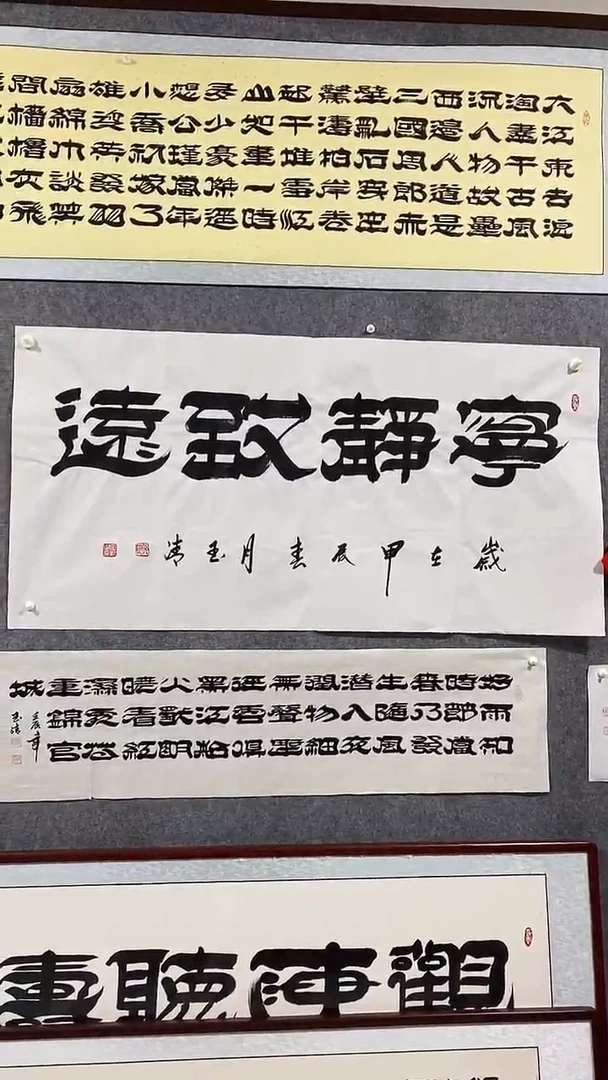 大江東去浪
淘盡千古風
流人物故壘
西邊人道是
三國周郎赤
壁亂石穿空
驚濤拍岸卷
起千堆雪江
山如畫一時
多少豪傑遙
想公瑾當年
小喬初嫁了
雄姿英發羽
扇綸巾談笑
間檣櫓灰飛
寧靜致遠
歲在甲辰春月玉清
好雨知
時節當
春乃發
生隨風
潛入夜
潤物細
無聲野
徑雲俱
黑江船
火獨明
曉看紅
濕處花
重錦官
城
觀海聽濤